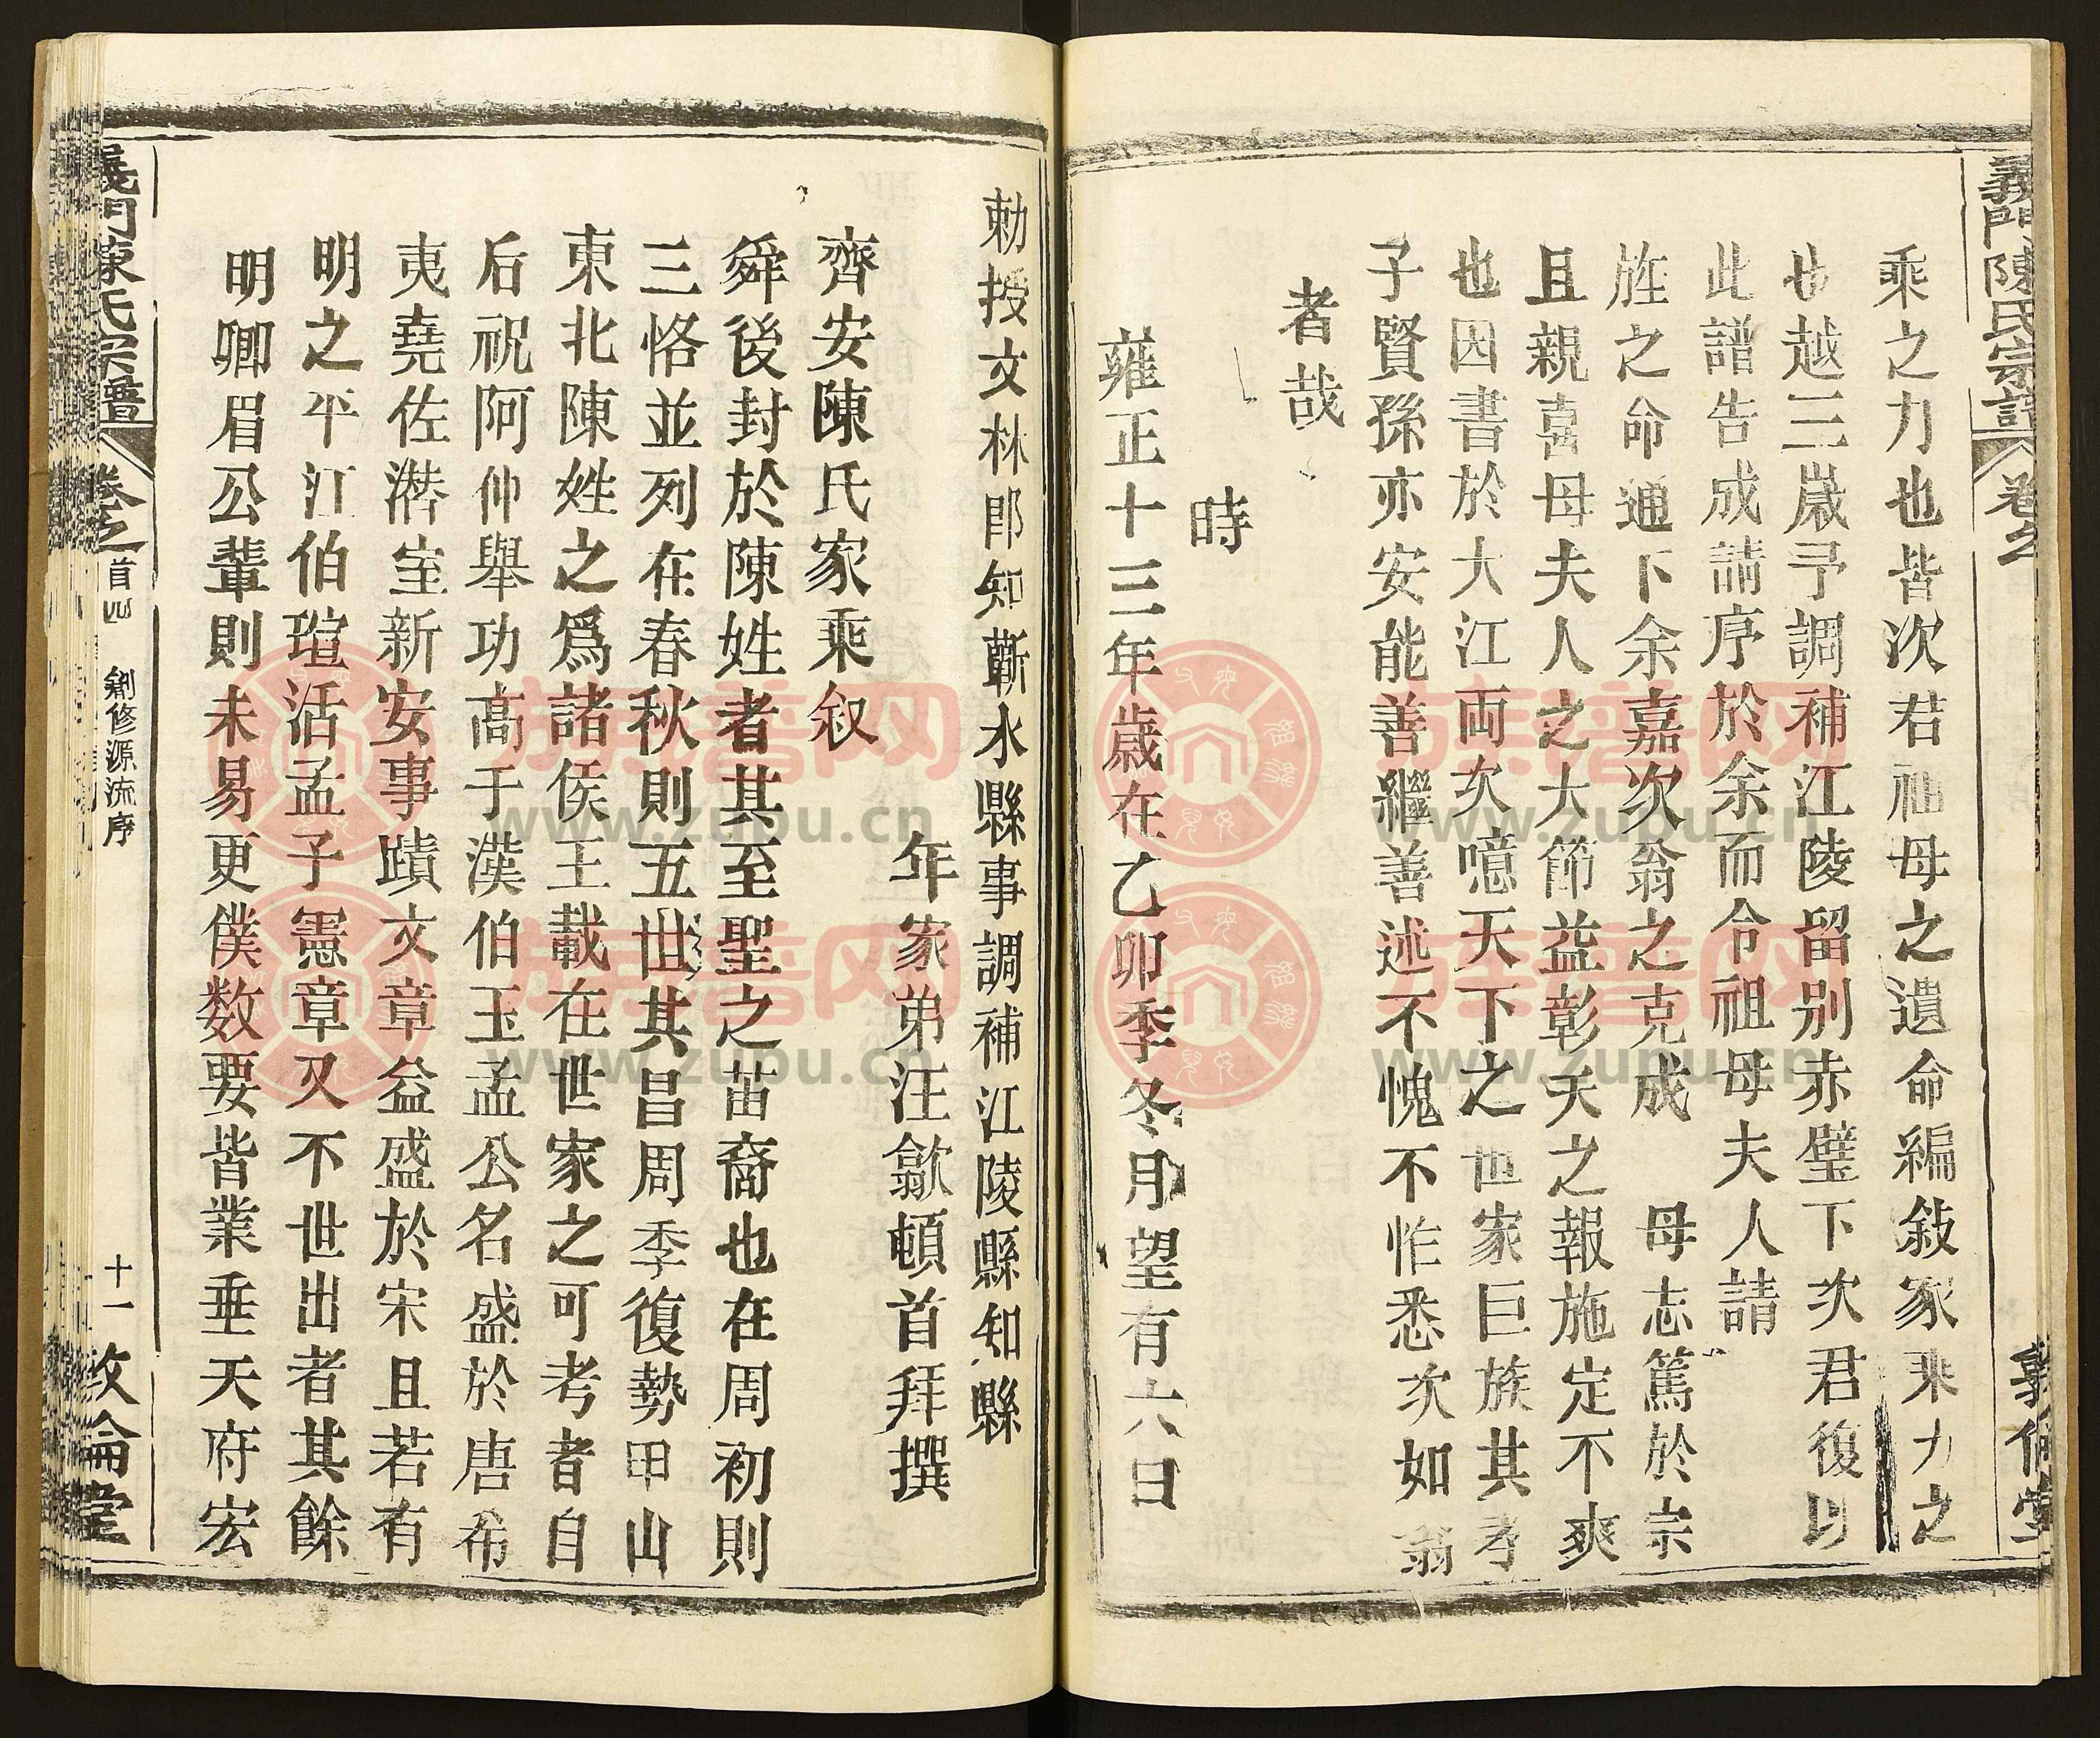 義門陳氏宗譜 卷之 敦倫堂
乘之力也皆次君祖母之遺命編敍家乘力之
也越三歲予調補江陵留別赤壁下次君復以
此譜告成請序於余而令祖母夫人請
旌之命通下余嘉次翁之克成 母志篤於宗
且親喜母夫人之大節益彰天之報施定不爽
也因書於大江両次噫天下之世家巨族其孝
子賢孫亦安能善繼善述不愧不怍悉次如翁
者哉
時
雍正十三年歲在乙卯季冬月望有六日
勅授文林郎知蘄水縣事調補江陵縣知縣
年家弟汪歙頓首拜撰
齊安陳氏家乘叙
舜後封於陳姓者其至聖之苗裔也在周初則
三恪並列在春秋則五世其昌周季復勢甲山
東北陳姓之爲諸侯王載在世家之可考者自
后祝阿仲舉功高于漢伯玉孟公名盛於唐希
夷堯佐濳室新安事蹟文章益盛於宋且若有
明之平江伯瑄活孟子憲章又不世出者其餘
明卿眉公輩則未易更僕数要皆業垂天府宏
義門陳氏宗譜 卷之首四 創修源流序 十一 敦倫堂
族譜网
www.zupu.cn
族譜网
www.zupu.cn
族譜网
www.zupu.cn
族譜网
www.zupu.cn